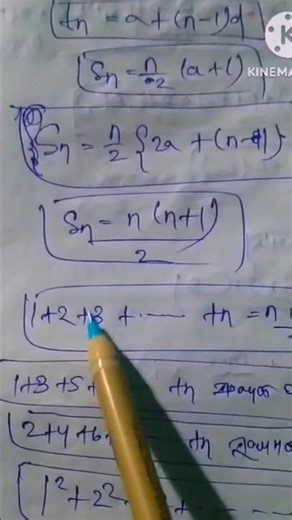 tn = a + (n-1)d
KINEMA
Sn = n/2 (a+l)
Sn = n/2 {2a + (n-1)
Sn = n(n+1)/2
1+2+3 + ...... +n = n
1+3+5+ +n
2+4+6 +n
1²+2²+